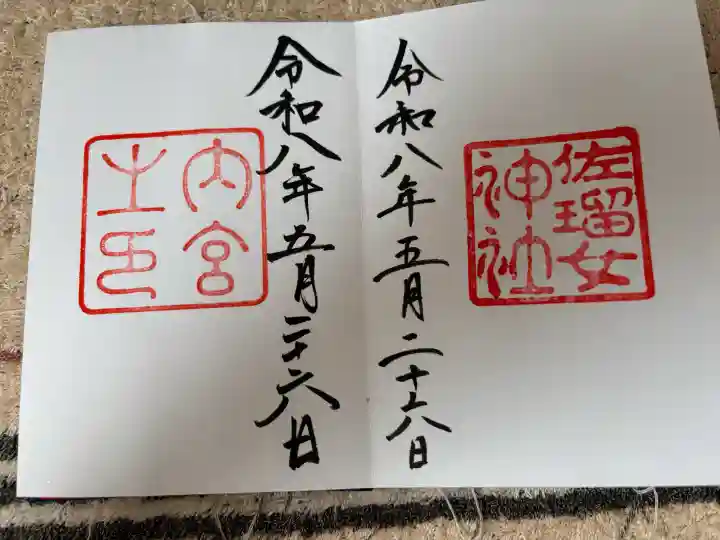 佐瑠女
神社
令和八年五月二十六日
令和八年五月二十六日
内宮
之印